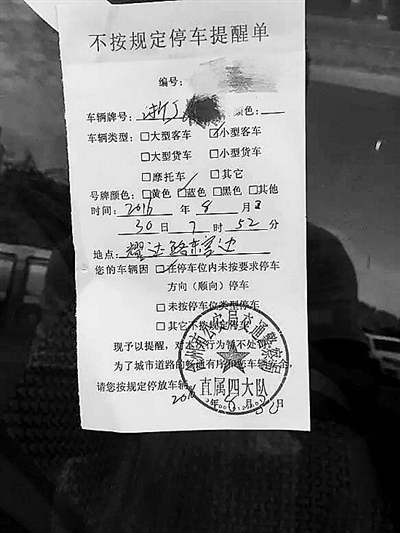 不按规定停车提醒单
编号:
车辆牌号: 浙J 颜色:
车辆类型: □大型客车 ☑小型客车
□大型货车 □小型货车
□摩托车 □其它
号牌颜色: □黄色 ☑蓝色 □黑色 □其他
时间: 2016 年 8 月
30 日 7 时 52 分
地点: 耀达路东官边
您的车辆因 ☑在停车位内未按要求停车
方向(顺向)停车
□未按车位类型停车
□其它不按规定停车
现予以提醒, 对本次行为暂不处罚
为了城市道路的畅通有序和您车辆安全,
请您按规定停放车辆。
州市公安局交通警察
直属四大队
2016年8月30日